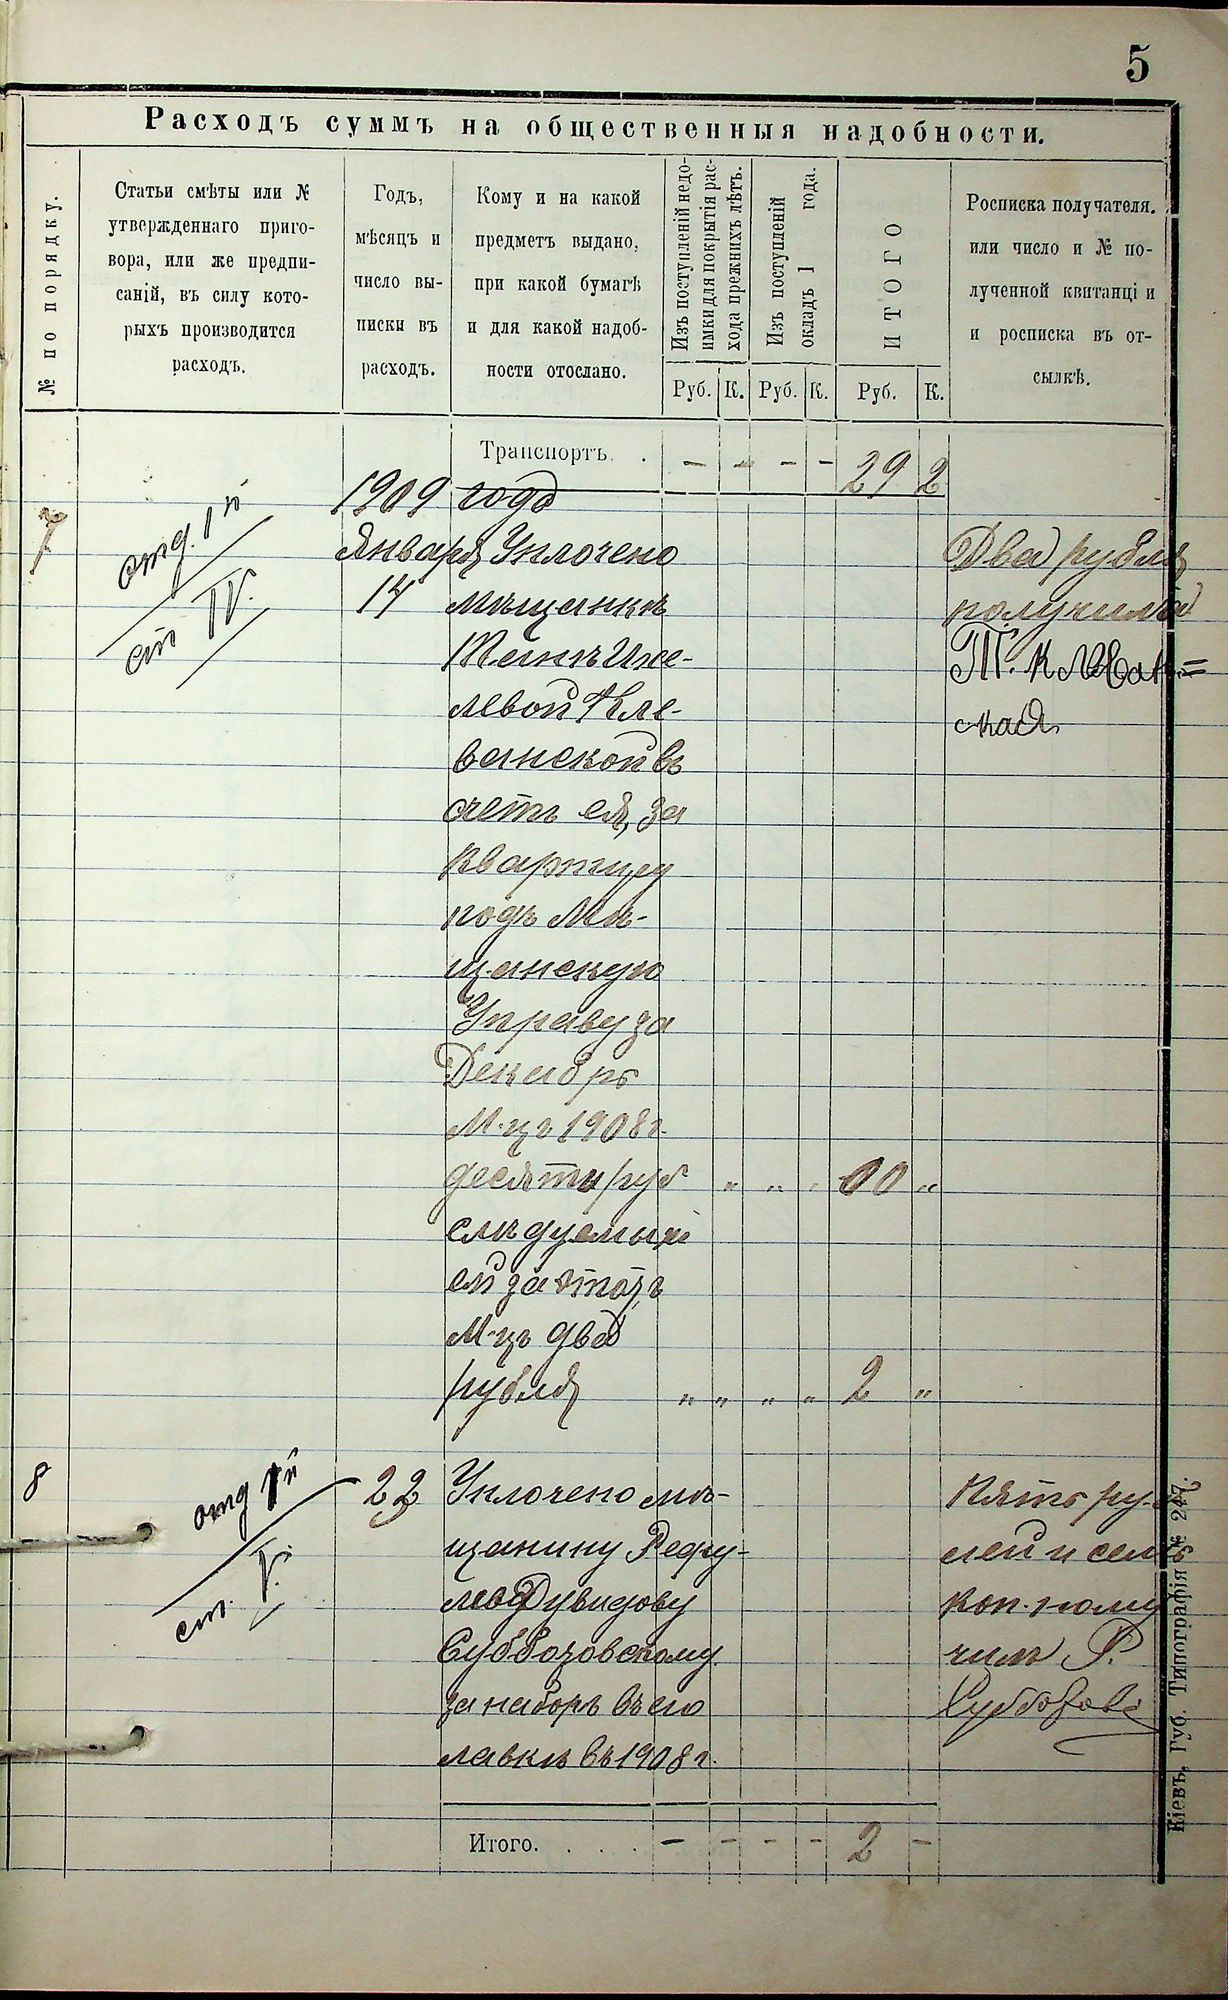 5
Расходъ суммъ на общественныя надобности.
№ по порядку.
Статьи смѣты или №
утвержденнаго приго-
вора, или же предпи-
саній, въ силу кото-
рыхъ производится
расходъ.
Годъ,
мѣсяцъ и
число вы-
писки въ
расходъ.
Кому и на какой
предметъ выдано,
при какой бумагѣ
и для какой надоб-
ности отослано.
Изъ поступленій недо-
имки для покрытія рас-
хода прежнихъ лѣтъ.
Изъ поступленій
окладъ 1 года.
ИТОГО
Росписка получателя.
или число и № по-
лученной квитанці и
и росписка въ от-
сылкѣ.
Руб. К. Руб. К. Руб. К.
Транспортъ. . - - - - 29 2
1909 года
7 отд. 1й ст IV. Января Уплочено
14 мѣщанкѣ
левой Кле-
ванской въ
счетъ ея, за
квартиру
подъ Мѣ-
щанскую
Управу за
Декабрь
М-цъ 1908 г.
десять руб „ „ „ 00 „
слѣдуемыхъ
ей за этотъ
М-цъ два
рубля „ „ „ „ 2 „
Два рубля
получила
Т. Клеван=
ская
8 отд 1й ст. V. 22 Уплочено мѣ-
щанину Рефу-
лю Дувидову
Субботовскому
за наборъ въ его
лавкѣ въ 1908 г.
Пять руб-
лей и семь
коп. полу
чилъ Р.
Итого. . . . - - - - 2 -
Кіевъ, Губ. Типографія № 247.